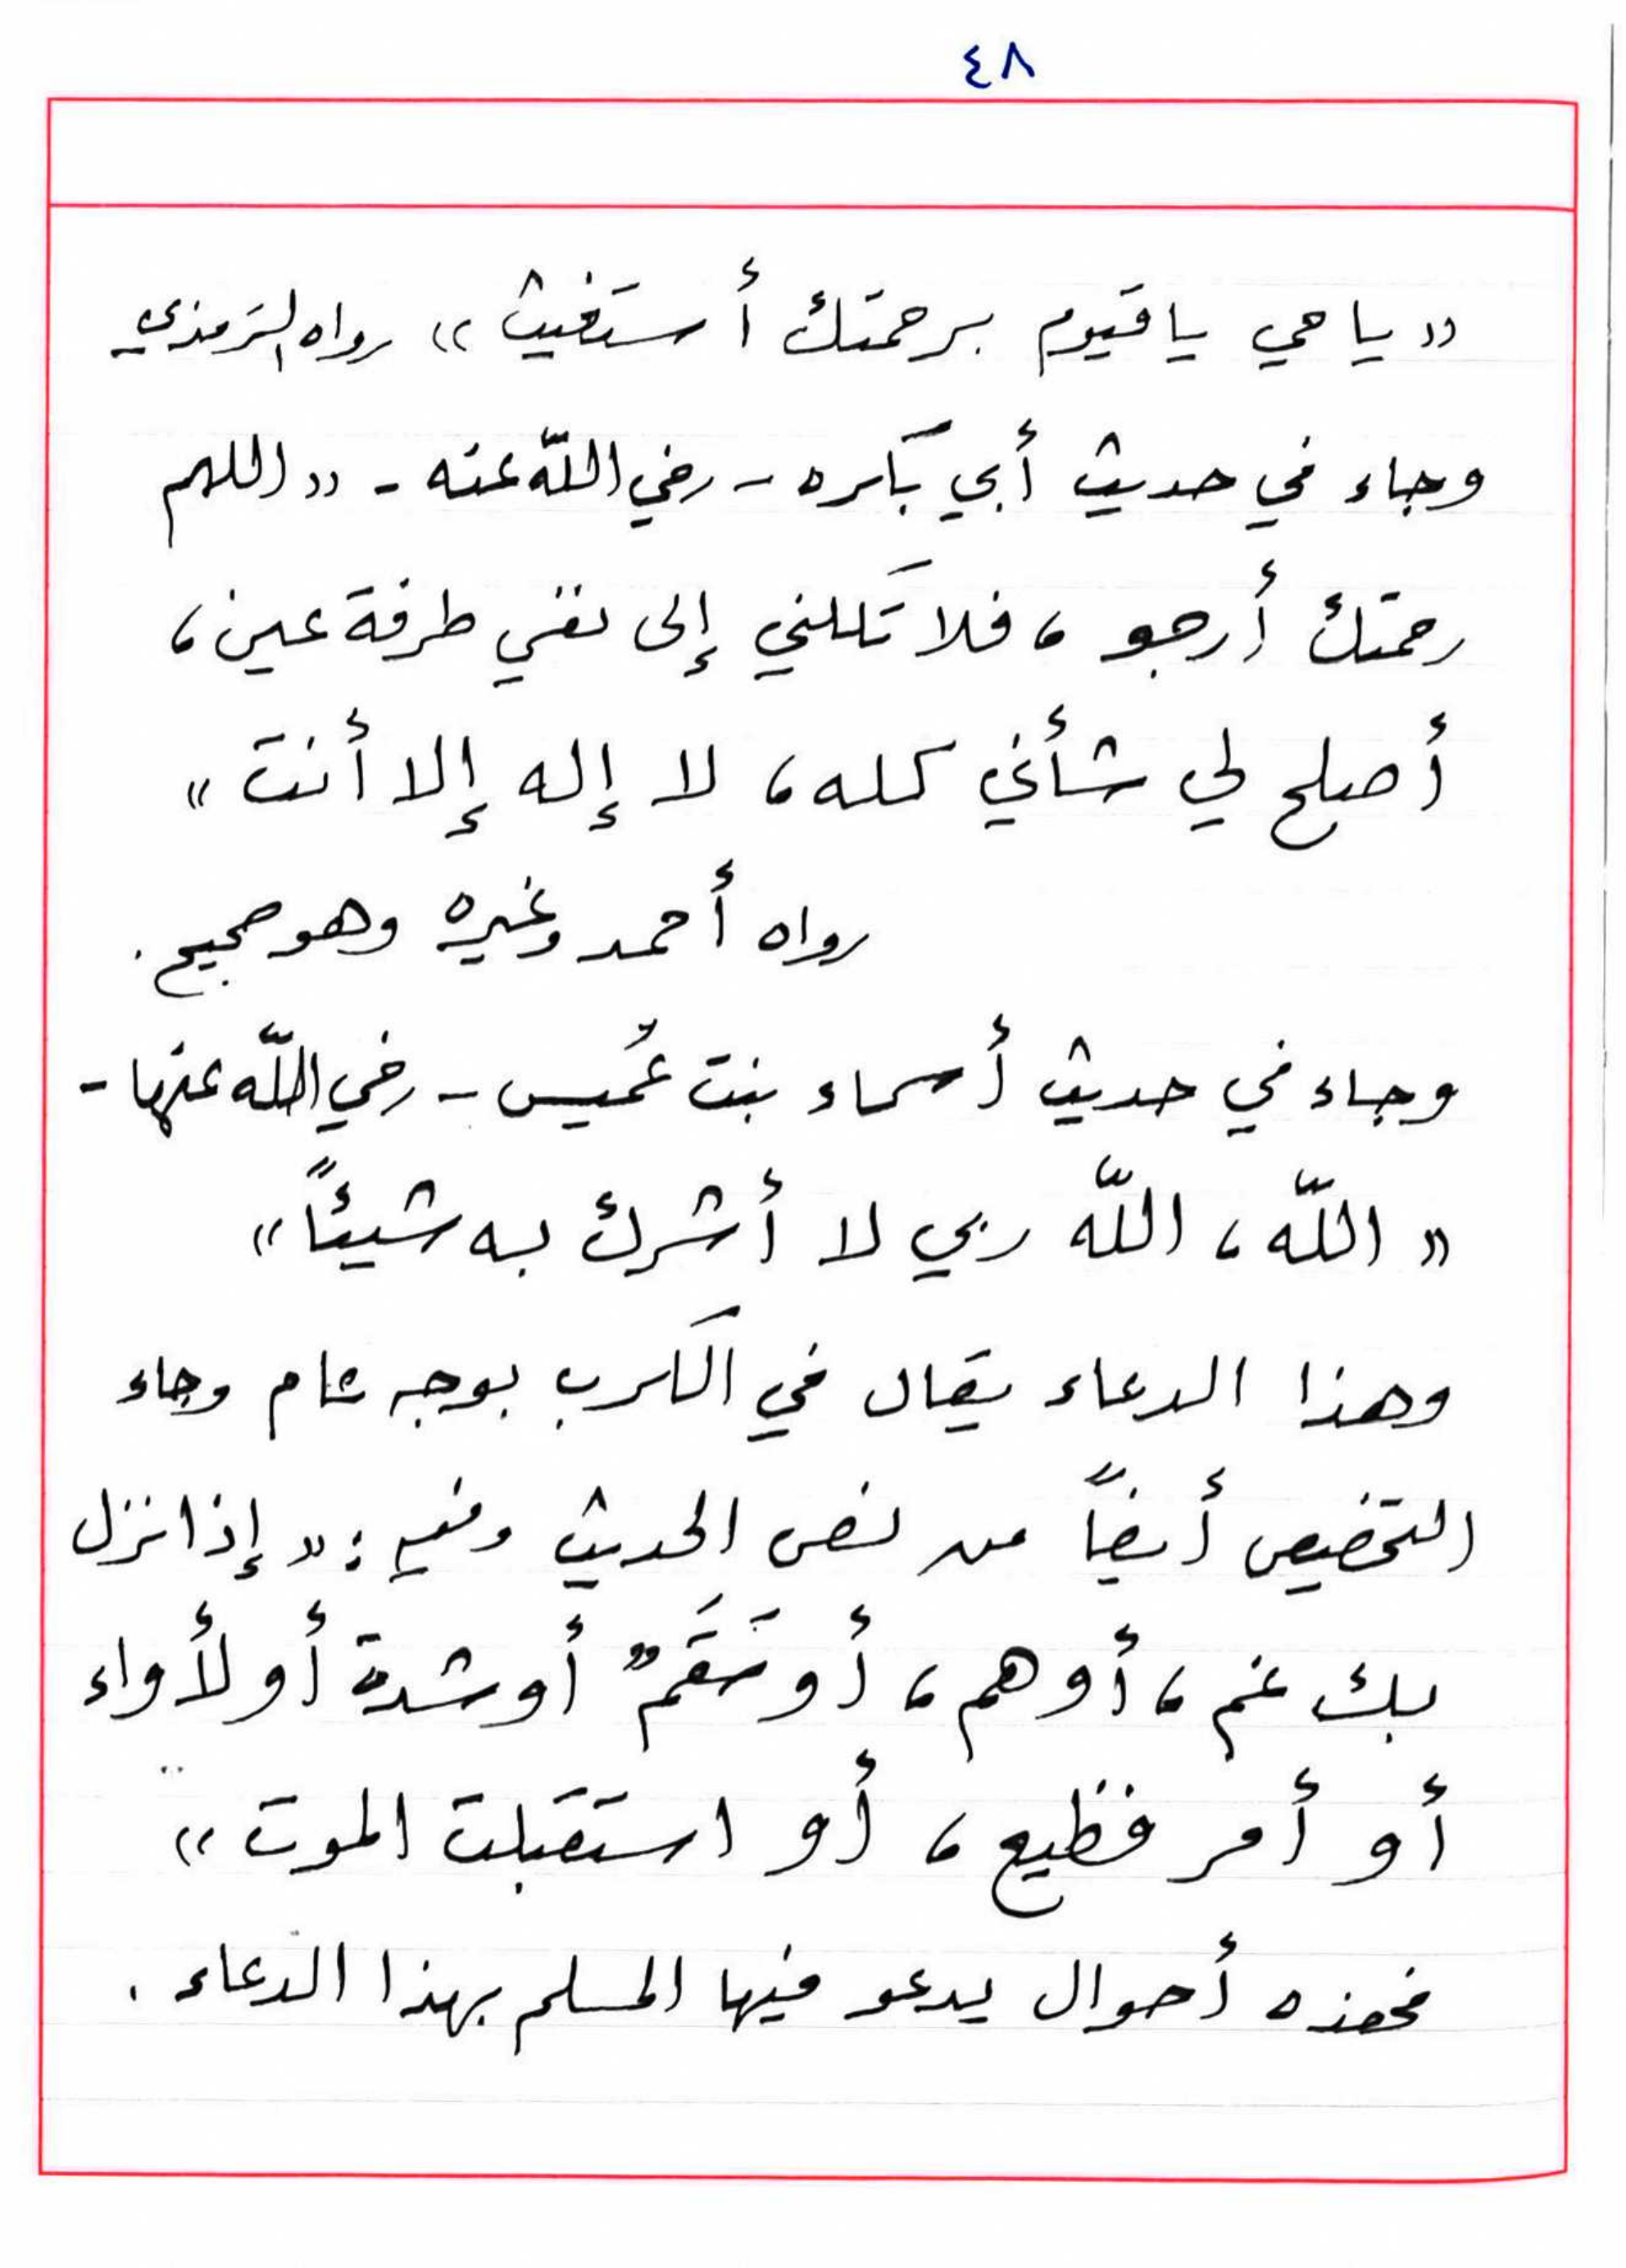 ٤٨
«يا حي يا قيوم برحمتك أستغيث» رواه الترمذي
وجاء في حديث أبي بكره - رضي اللّه عنه - «اللهم
رحمتك أرجو، فلا تكلني إلى نفسي طرفة عين،
أصلح لي شأني كله، لا إله إلا أنت»
رواه أحمد وغيره وهو صحيح.
وجاء في حديث أسماء بنت عُميس - رضي اللّه عنها -
«اللّه، اللّه ربي لا أشرك به شيئاً»
وهذا الدعاء يقال في الكرب بوجه عام وجاء
التخصيص أيضاً من نص الحديث وفيه: «إذا نزل
بك غم، أو هم، أو سَقَمٌ أو شدة أو لأواء
أو أمر فظيع، أو استقبلت الموت»
فهذه أحوال يدعو فيها المسلم بهذا الدعاء.